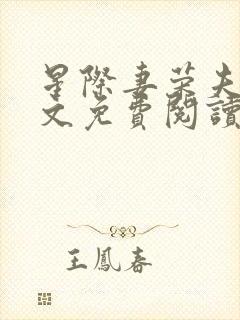 星際妻榮夫
文免費閱讀
王鳳春